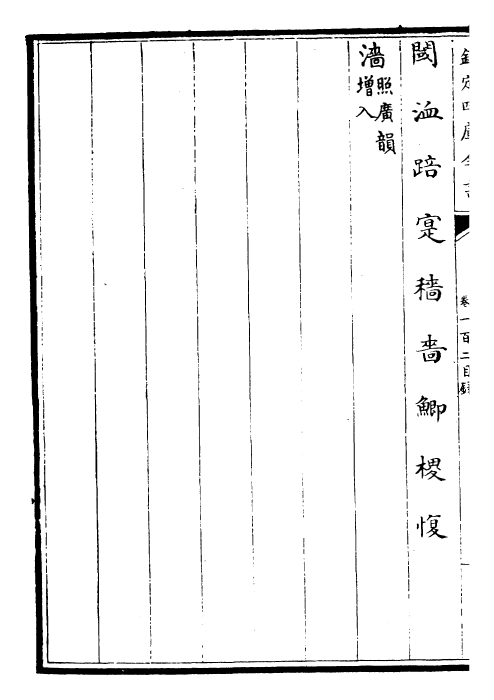 欽定四庫全書
卷一百二目録
閾洫踣寔穡嗇鯽稷愎
濇照廣韻增入